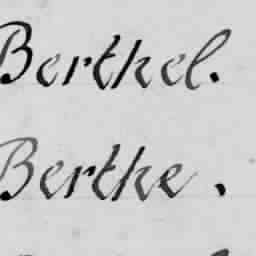 Berthel.
Berthe.